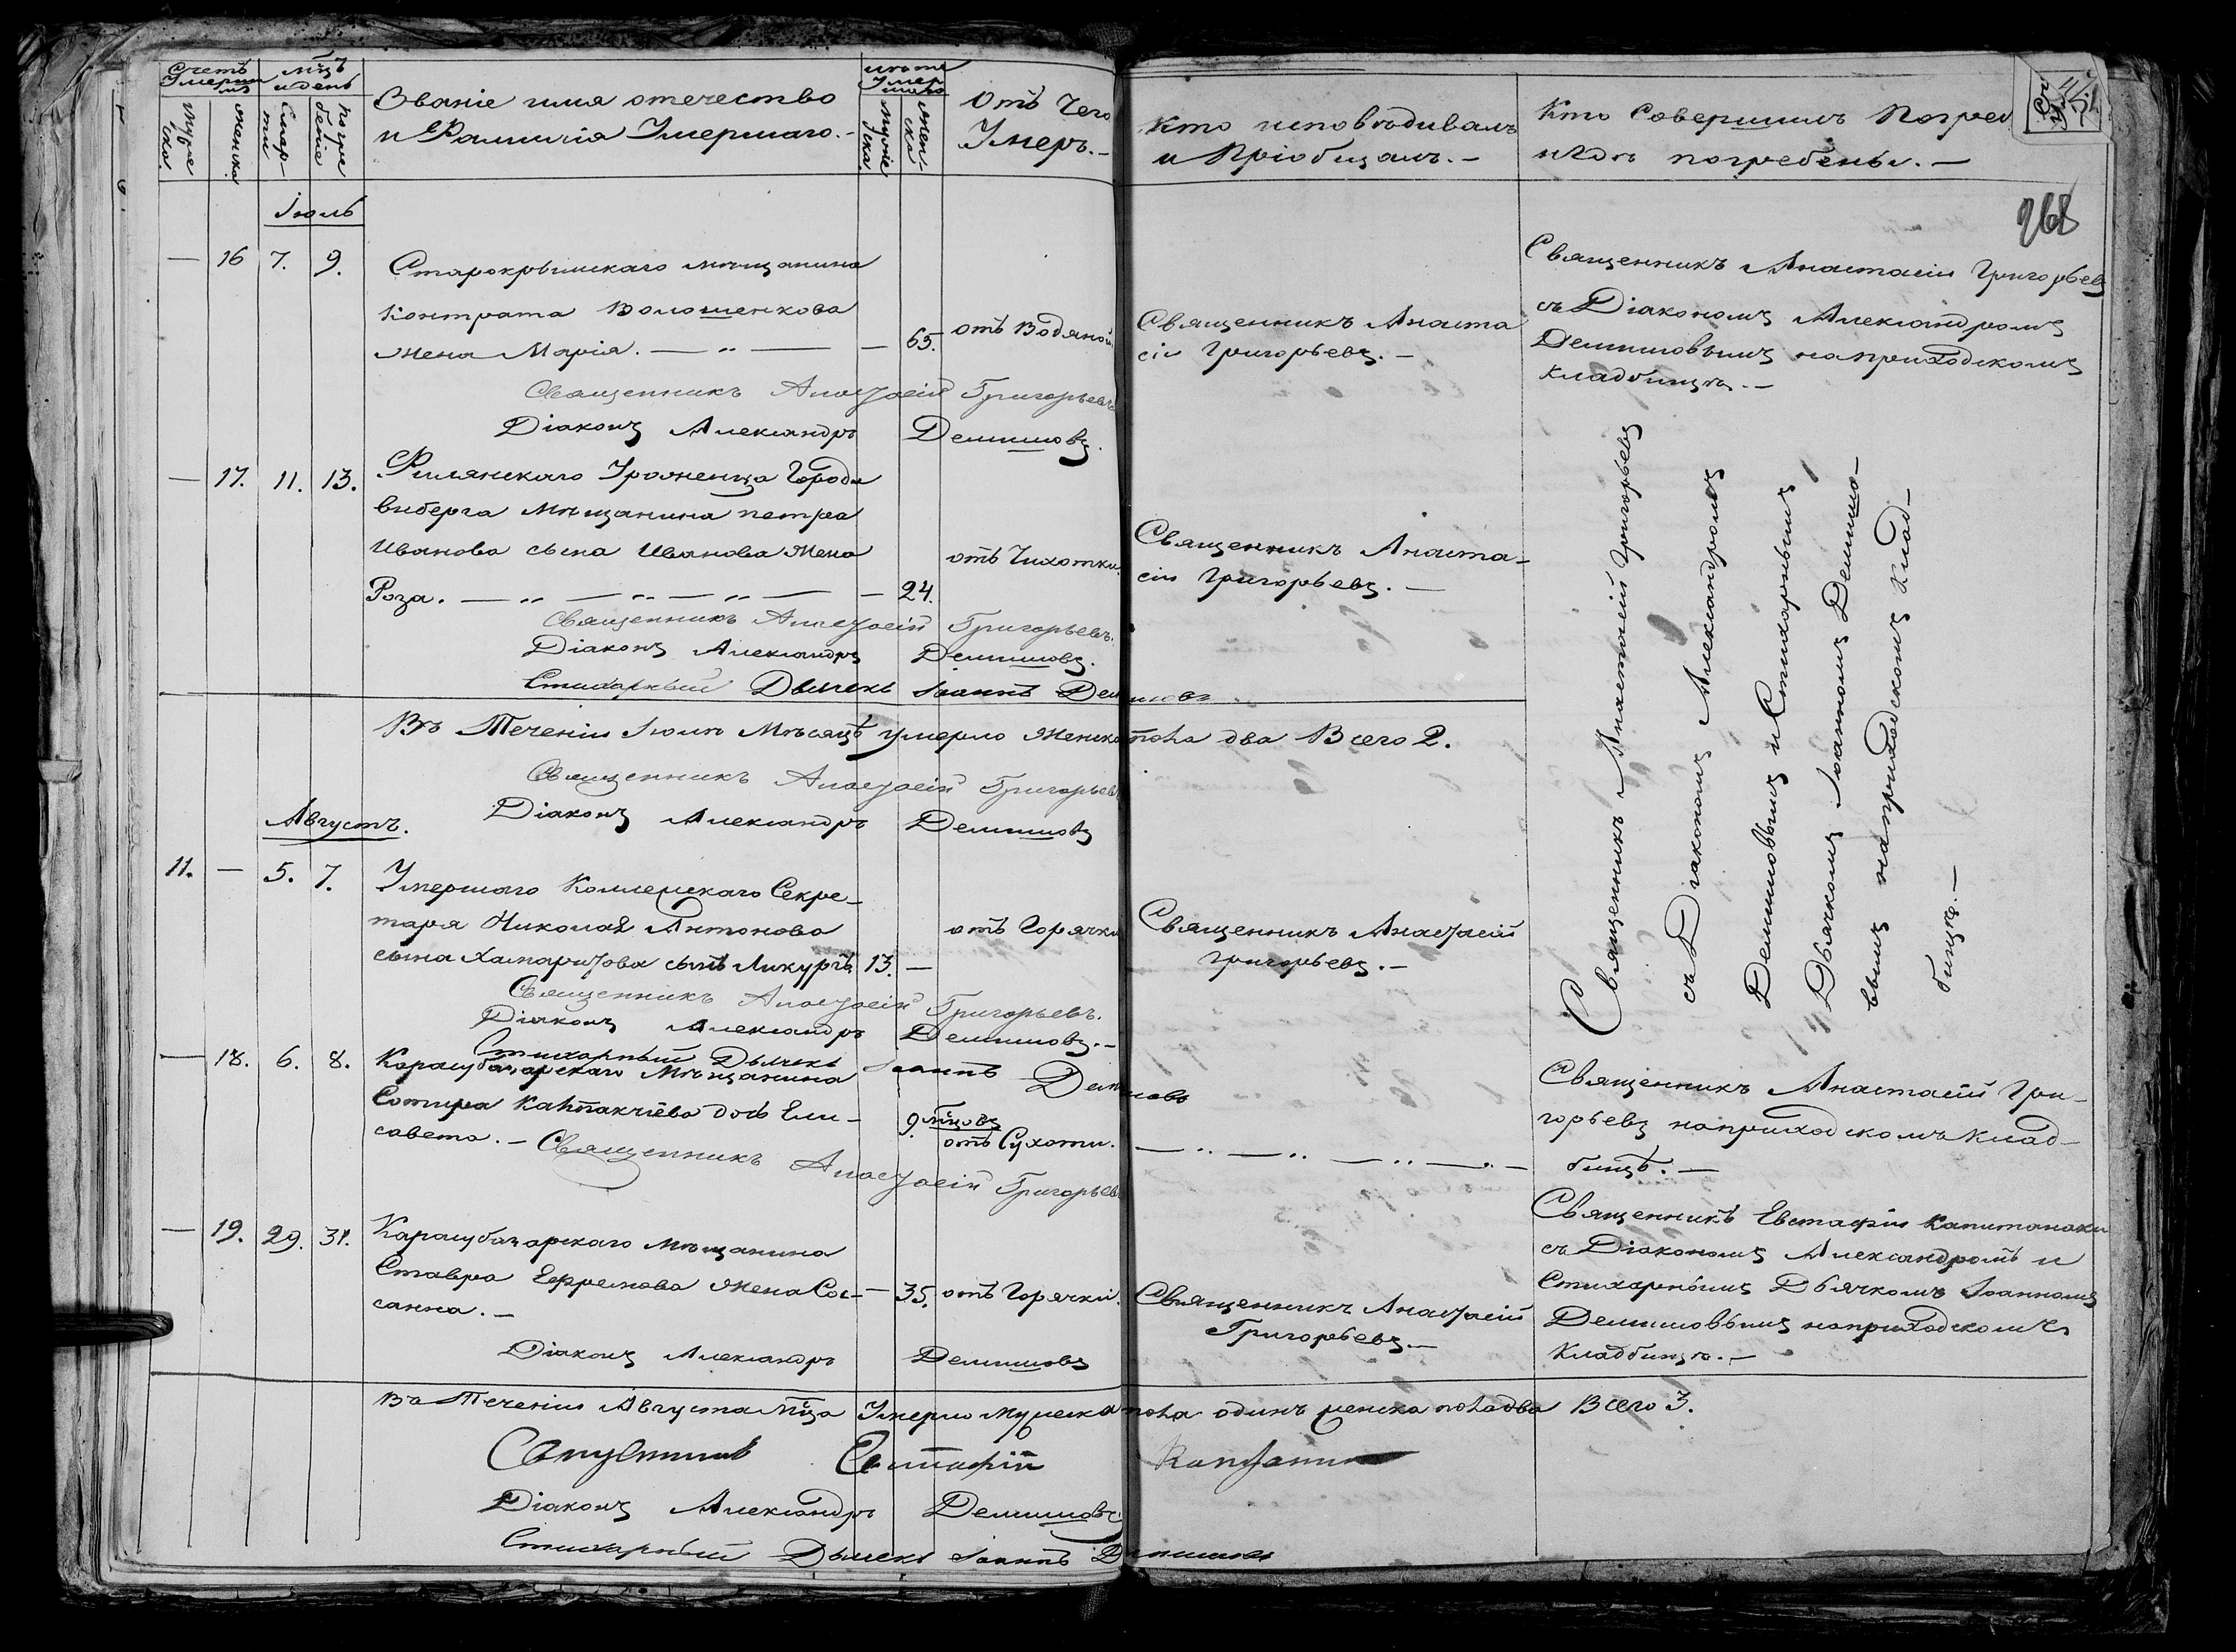 Счетъ Умершихъ
Мужеска.
Женска
мцъ и день
Смерти
Погребенія
Званіе имя отечество
и Фамилія Умершаго.-
Умершаго
Мужеска
Женска
Отъ Чего
Умеръ.-
Кто исповѣдивалъ
и Пріобщалъ.-
Кто Совершилъ Погреб
и гдѣ погребены.-
268
Іюль
— 16 7. 9.
Старокрымскаго мѣщанина
Контрата Волошенкова
жена Марія. — „ — — 65. отъ Водяной
Священникъ Анаста
сій Григорьевъ.-
Священникъ Анастасій Григорьевъ
съ Діакономъ Александромъ
Демишовымъ на приходскомъ
кладбищѣ.-
Священникъ Анастасій Григорьевъ
Діаконъ Александръ Демишовъ.
— 17. 11. 13.
Римлянскаго Уроженца Города
виберга Мѣщанина петра
Иванова сына Иванова Жена
Роза. — „ — „ — „ — — 24.
отъ Чихотки.
Священникъ Анаста-
сій Григорьевъ.-
Священникъ Анастасій Григорьевъ.
Діаконъ Александръ Демишовъ.
Стихарный Дьячекъ Іоаннъ Демишовъ
Священникъ Анастасій Григорьевъ
съ Діакономъ Александромъ
Демишовымъ и Стихарнымъ
Дьячкомъ Іоанномъ Демишо-
вымъ на приходскомъ клад-
бищѣ.-
Въ Теченіи Іюлѣ Мѣсяцѣ умерло Женска пола два Всего 2.
Священникъ Анастасій Григорьевъ
Діаконъ Александръ Демишовъ
Августъ.
11. — 5. 7.
Умершаго Коллежскаго Секре-
таря Николая Антонова
сына Хамаритова сынъ Ликургъ 13. —
отъ Горячки
Священникъ Анастасій
Григорьевъ.-
Священникъ Анастасій Григорьевъ.
Діаконъ Александръ Демишовъ.-
Стихарный Дьячекъ Іоаннъ Демишовъ
— 18. 6. 8.
Карасубазарскаго Мѣщанина
Сотира Капакчіева дочь Ели-
савета.-
9. мцовъ
отъ Сухоти.
— „ — „ — „ — „ —
Священникъ Анастасій Гри-
горьевъ на приходскомъ клад-
бищѣ.-
Священникъ Анастасій Григорьевъ
— 19. 29. 31.
Карасубазарскаго мѣщанина
Ставра Ефремова жена Со-
санна.-
— 35. отъ Горячки.
Священникъ Анастасій
Григорьевъ.-
Священникъ Евстафій Капитанаки
съ Діакономъ Александромъ и
Стихарнымъ Дьячкомъ Іоанномъ
Демишовымъ на приходскомъ
кладбищѣ.-
Діаконъ Александръ Демишовъ
Въ Теченіи Августа мца Умерло мужеска пола одинъ женска пола два Всего 3.
Евстафій
Діаконъ Александръ Демишовъ
Стихарный Дьячекъ Іоаннъ Демишовъ